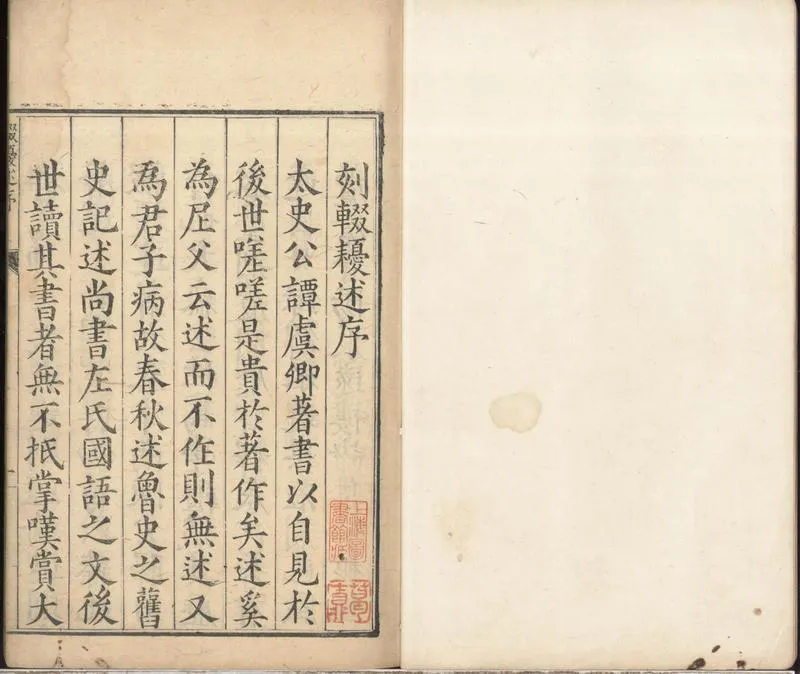 刻輟耰述序
太史公譚虞卿著書以自見於
後世嗟嗟是貴於著作矣述奚
為尼父云述而不作則無述又
為君子病故春秋述魯史之舊
史記述尚書左氏國語之文後
世讀其書者無不抵掌嘆賞大
輟耰述序
上海圖
書館藏